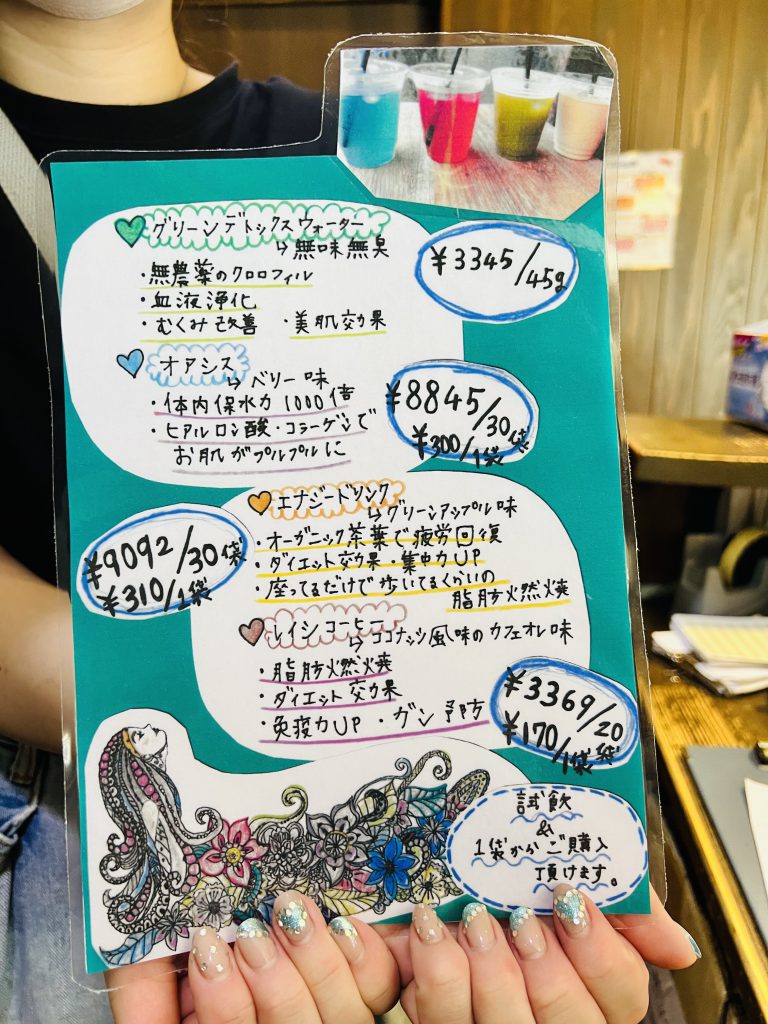 グリーンデトックスウォーター
↳無味無臭
¥3345/45g
・無農薬のクロロフィル
・血液浄化
・むくみ改善 ・美肌効果
オアシス
↳ベリー味
・体内保水力1000倍
・ヒアルロン酸・コラーゲンで
お肌がプルプルに
¥8845/30袋
¥300/1袋
エナジードリンク
↳グリーンアップル味
・オーガニック茶葉で疲労回復
・ダイエット効果・集中力UP
・座ってるだけで歩いてるくらいの
脂肪燃焼
¥9092/30袋
¥310/1袋
レイシコーヒー
↳ココナッツ風味のカフェオレ味
・脂肪燃焼
・ダイエット効果
・免疫力UP ・ガン予防
¥3369/20袋
¥170/1袋
試飲
&
1袋からご購入
頂けます。